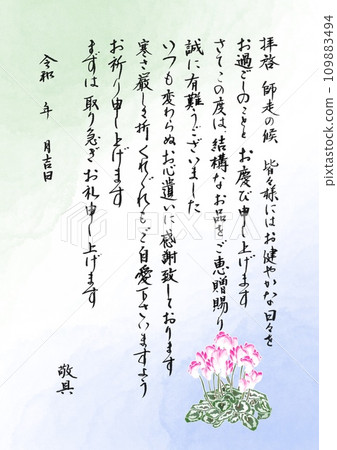 拝啓 師走の候 皆々様にはお健やかな日々を
お過ごしのことと お慶び申し上げます
さてこの度は、結構なお品をご恵贈賜り
誠に有難うございました
いつも変わらぬお心遣いに感謝致しております
寒さ厳しき折 くれぐれもご自愛下さいますよう
お祈り申し上げます
まずは 取り急ぎお礼申し上げます
敬具
令和 年 月吉日
PIXTA
109883494